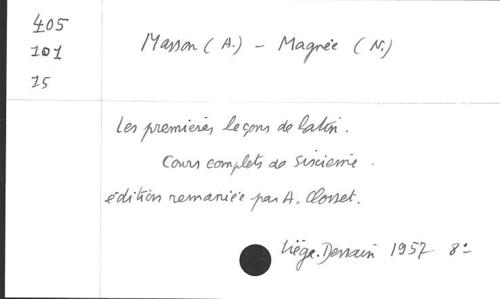 405
101
15
Masson (A.) – Magnée (N.)
Les premières leçons de latin.
Cours complets de sixième.
édition remaniée par A. Closset.
Liège. Dessain 1957 8°